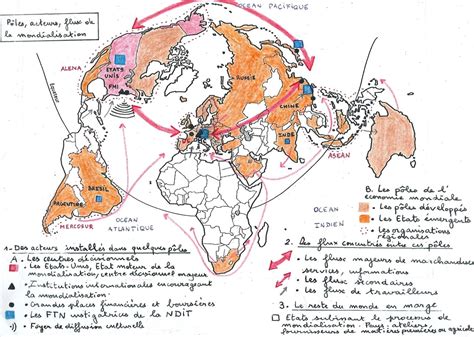 Pôles, acteurs, flux de
la mondialisation
OCEAN PACIFIQUE
ALENA
ETATS
UNIS
FMI
RUSSIE
CHINE
INDE
UE
ASEAN
BRESIL
ARGENTINE
MERCOSUR
OCEAN
ATLANTIQUE
OCEAN
INDIEN
1. Des acteurs installés dans quelques pôles
A. Les centres décisionnels
Les Etats-Unis, Etat moteur de la
mondialisation, centre décisionnel majeur
Institutions internationales encourageant
la mondialisation
Grandes places financières et boursières
Les FTN instigatrices de la NDIT
Foyer de diffusion culturelle
B. Les pôles de l'
économie mondiale
Les pôles développés
Les Etats émergents
Les organisations
régionales
2. Les flux concentrés entre ces pôles
Les flux majeurs de marchandises
services, informations
Les flux secondaires
Les flux de travailleurs
3. Le reste du monde en marge
Etats subissant le processus de
mondialisation. Pays: ateliers,
fournisseurs de matières premières ou agricoles